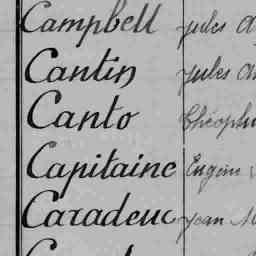 Campbell Jules A
Cantin Jules A
Canto Théophi
Capitaine Eugène
Caradeuc Jean M